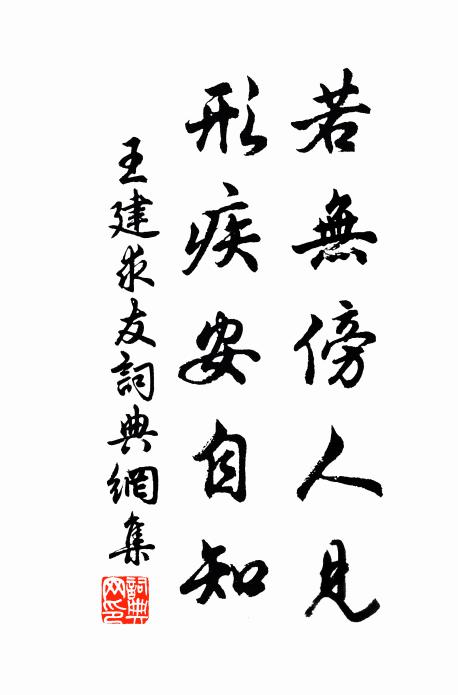 若無傍人見
形疾安自知
王建求友詞典網集
詞典網印